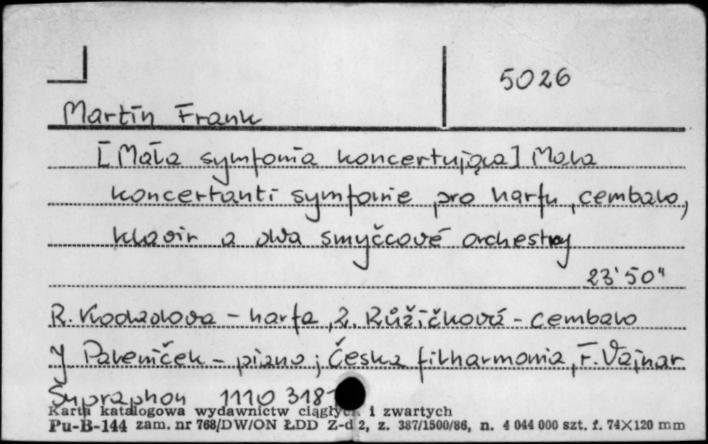 5026
Martin Frank
[Mała symfonia koncertująca] Mala
koncertanti symfonie pro harfu, cembalo,
klavir a dva smyčcové orchestry
23'50"
R. Kodadova - harfa, Z. Růžičková - cembalo
J Paleniček - piano; Česka filharmonia, F. Vajnar
Supraphon 1110 318
Karta katalogowa wydawnictw ciągłych i zwartych
Pu-B-144 zam. nr 768/DW/ON ŁDD Z-d 2, z. 387/1500/86, n. 4 044 000 szt. f. 74×120 mm